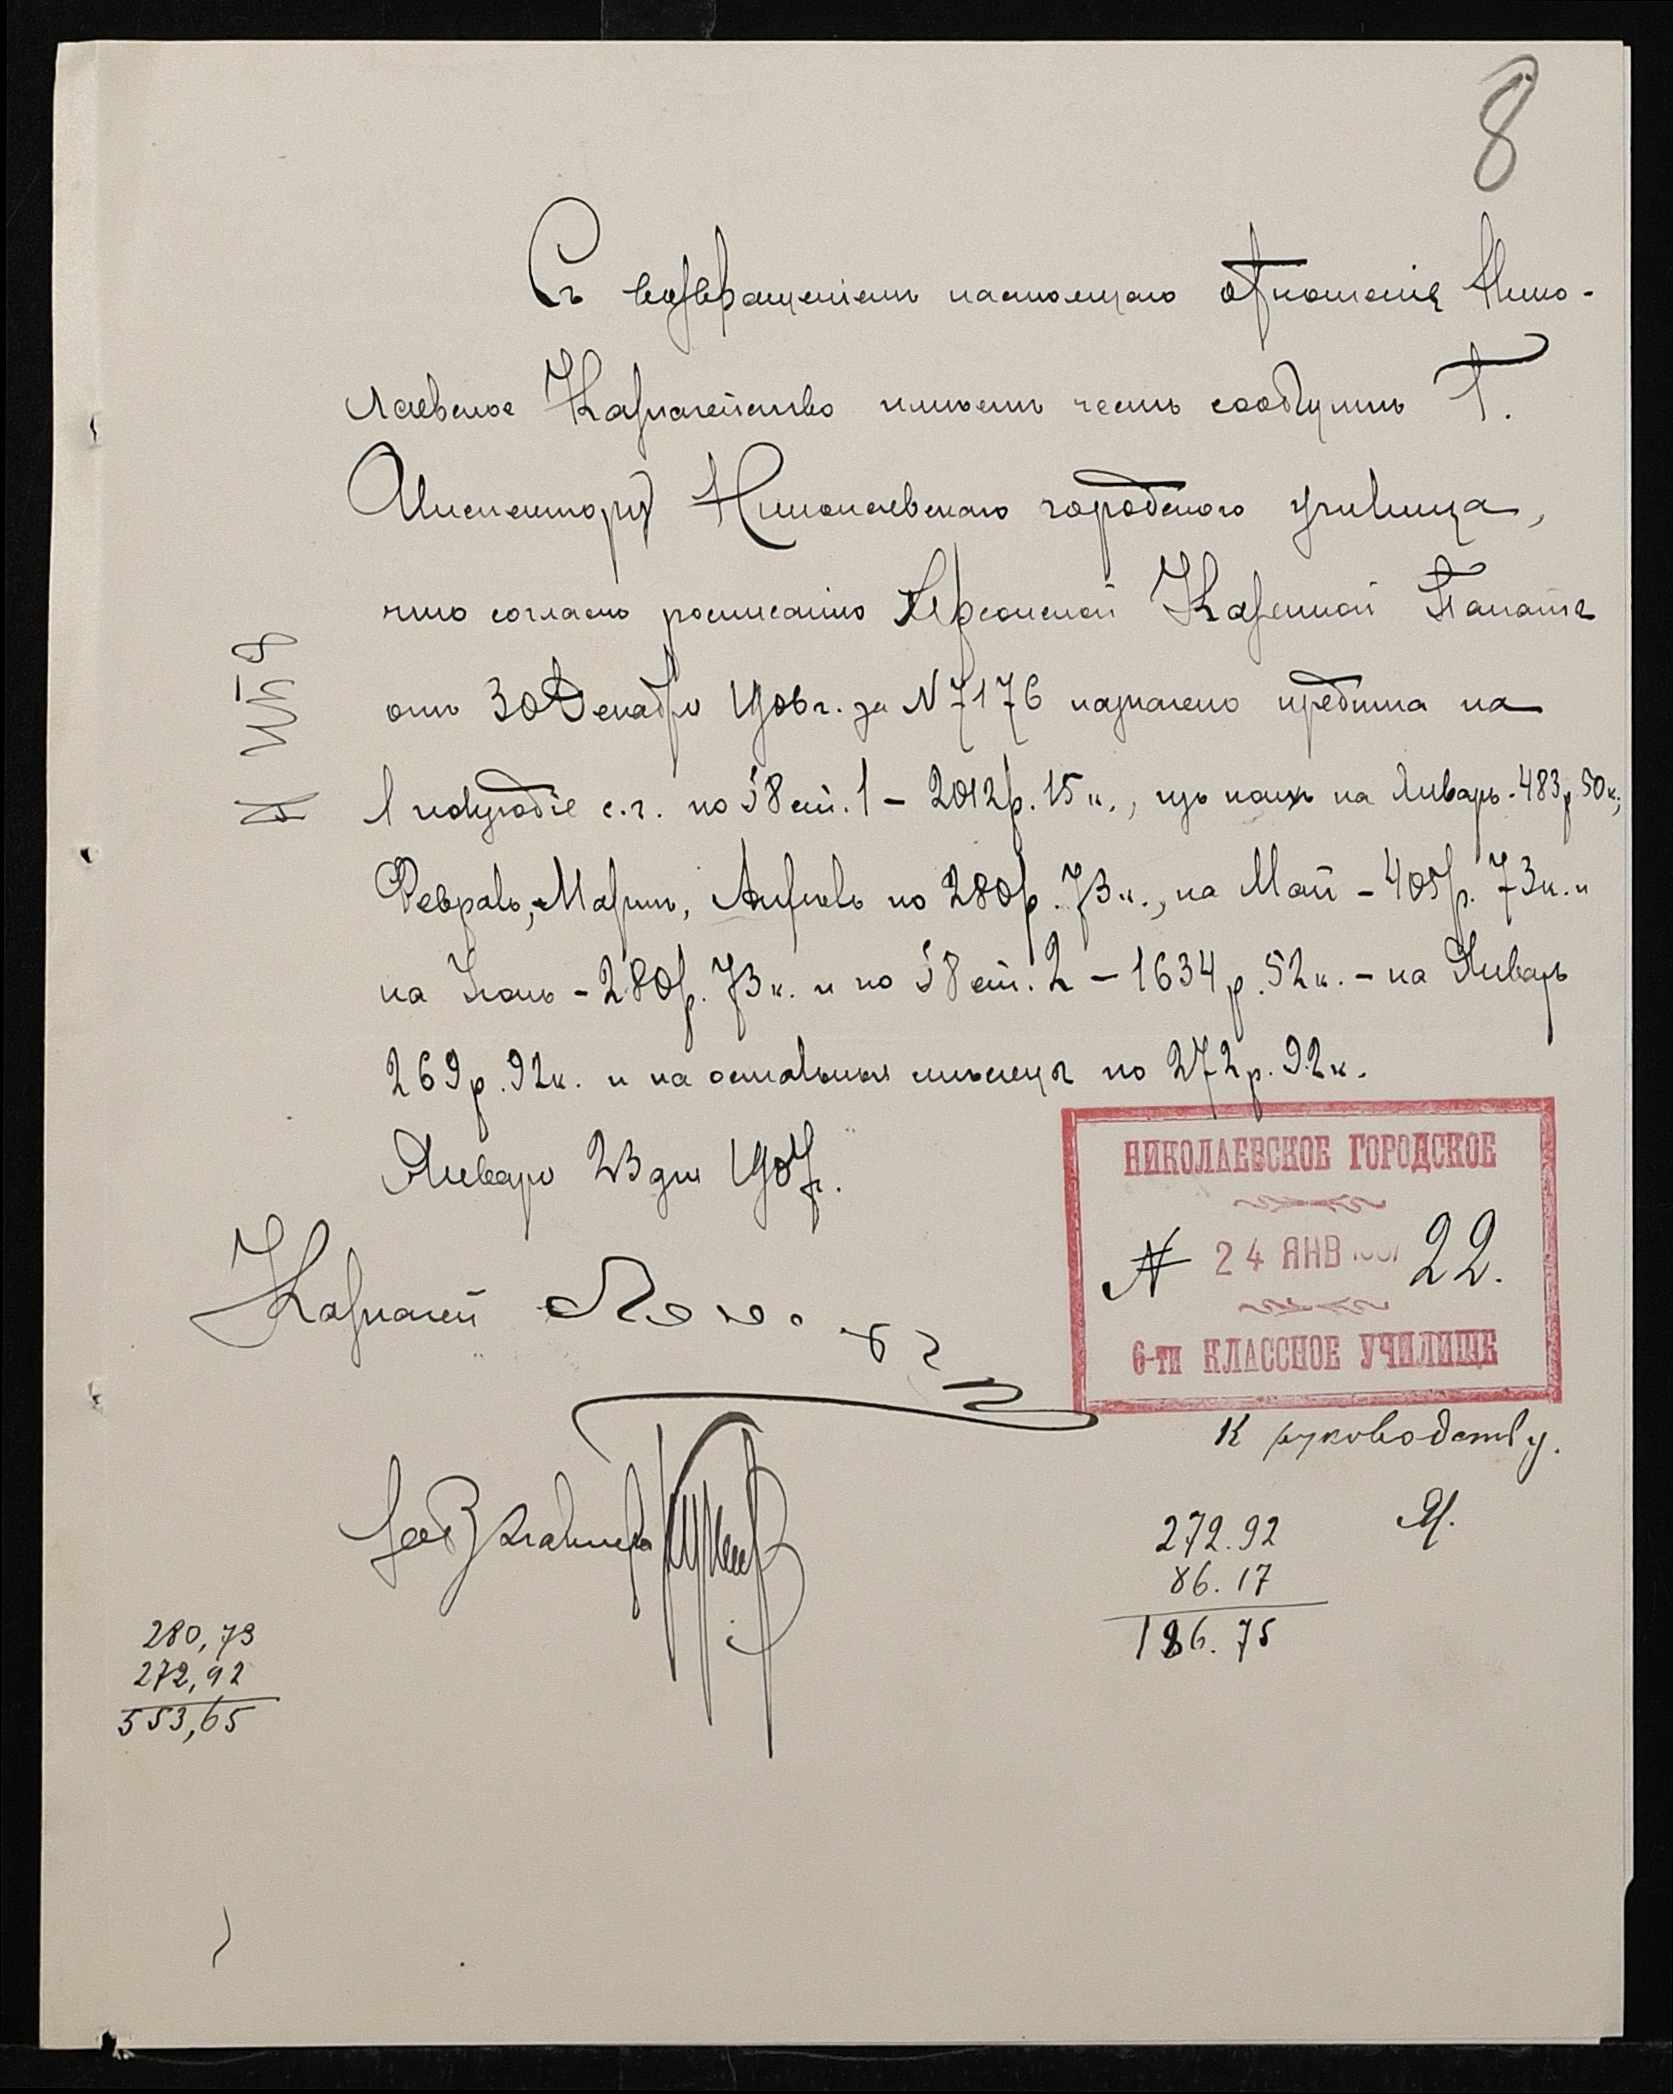 8
Съ возвращеніемъ настоящаго отношенія Нико-
лаевское Казначейство имѣетъ честь сообщить Г.
Инспектору Николаевскаго городского училища,
что согласно росписанію Херсонской Казенной Палаты
отъ 30 Декабря 1906 г. за N 7176 назначено кредита на
1 полугодіе с.г. по § 8 ст. 1 – 2012 р. 15 к., изъ коихъ на Январь - 483 р. 50 к.,
Февраль, Мартъ, Апрѣль по 280 р. 73 к., на Май – 405 р. 73 к. и
на Іюнь – 280 р. 73 к. и по § 8 ст. 2 – 1634 р. 52 к. – на Январь
269 р. 92 к. и на остальные мѣсяцы по 272 р. 92 к.
Января 23 дня 1907 г.
НИКОЛАЕВСКОЕ ГОРОДСКОЕ
N 24 ЯНВ 1907 22.
6-ти КЛАССНОЕ УЧИЛИЩЕ
Казначей
К руководству.
272.92
86.17
186.75
280,73
272,92
553,65